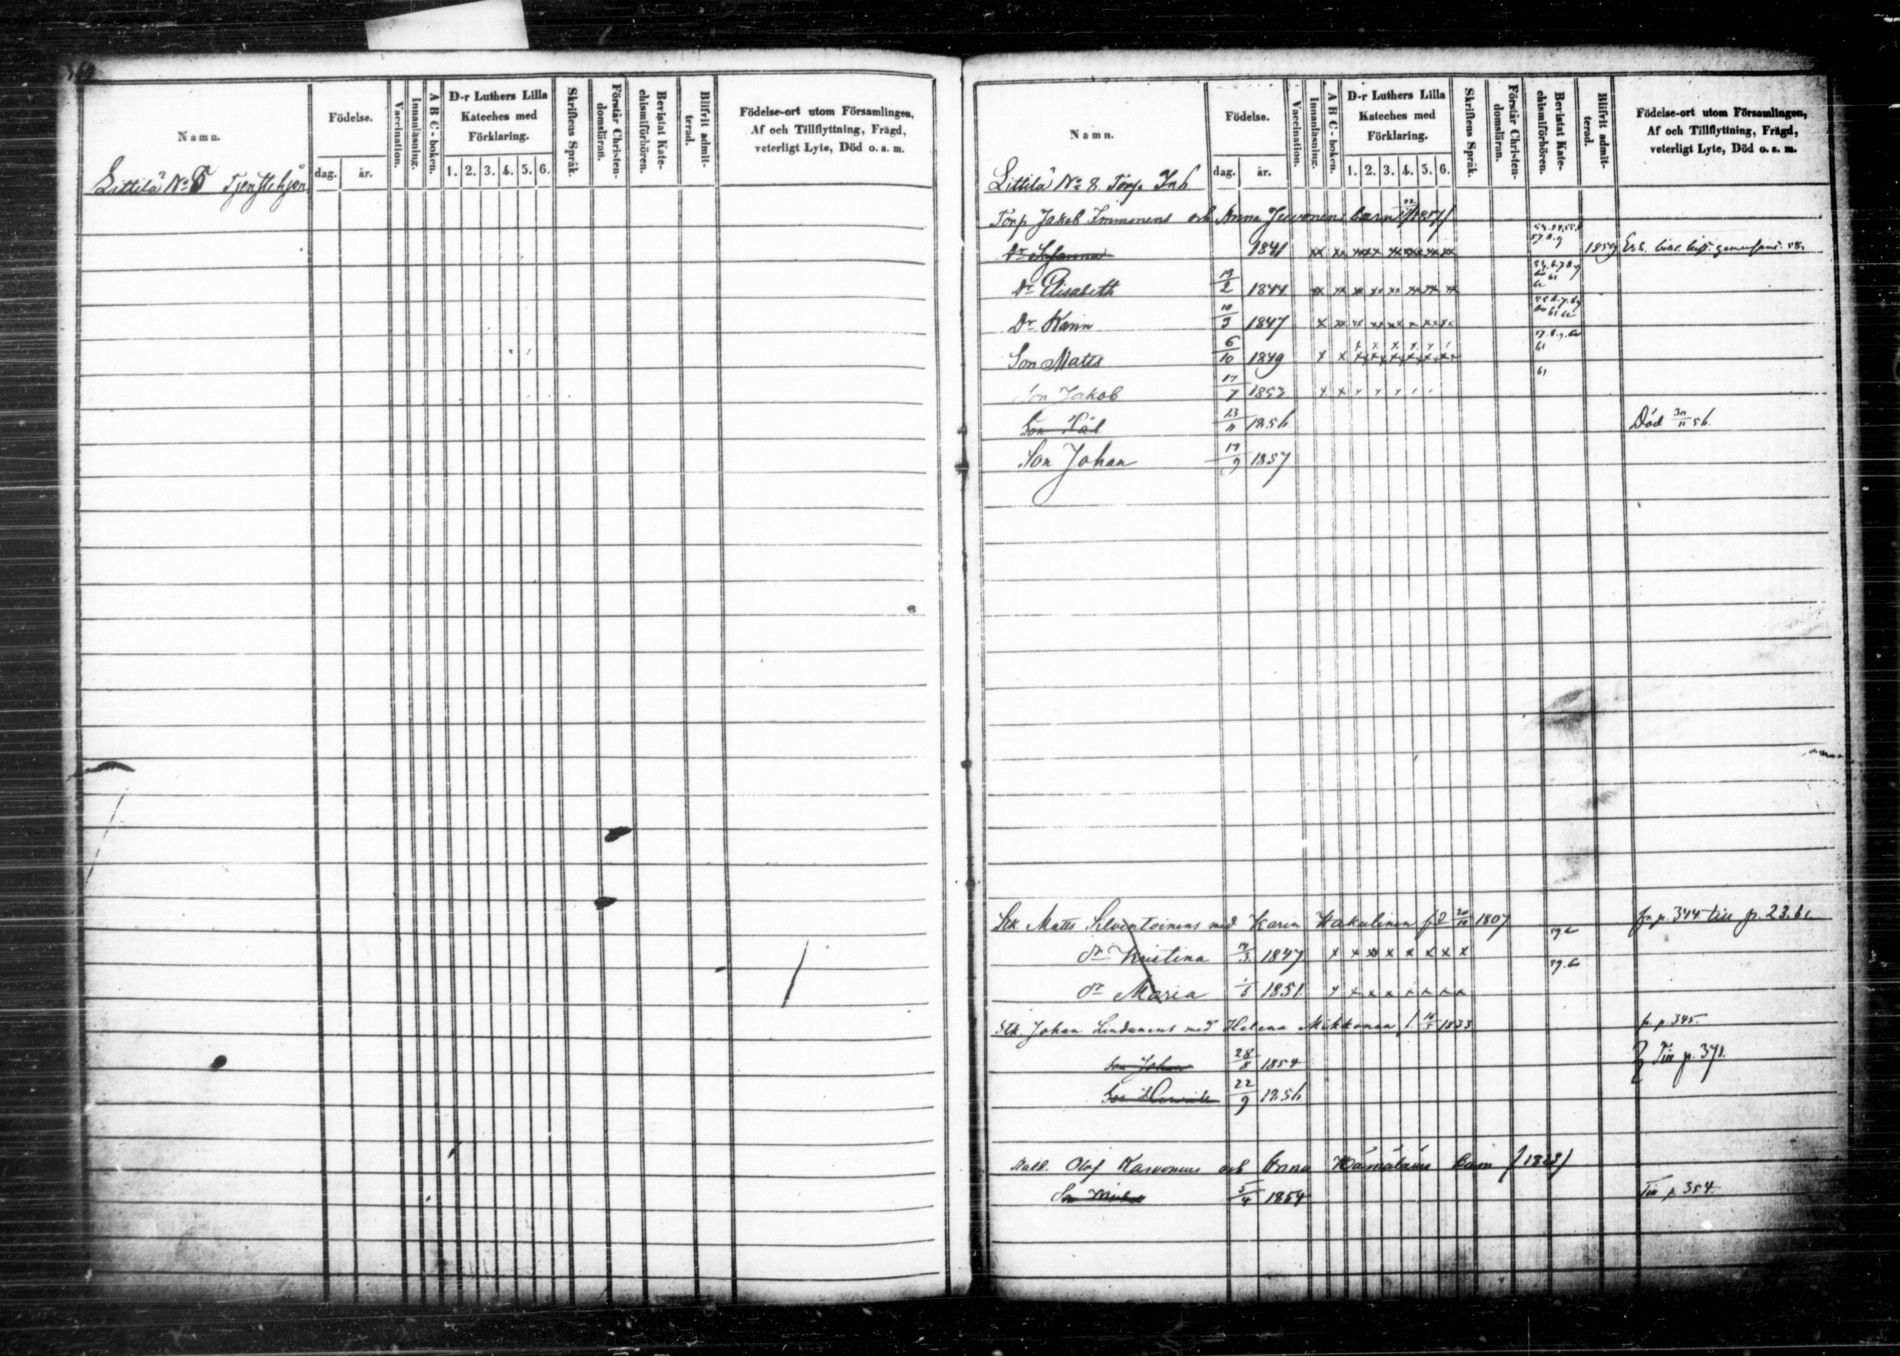 Namn.
Födelse.
dag.
år.
Vaccination.
Innanläsning.
A B C-boken.
D-r Luthers Lilla
Kateches med
Förklaring.
1. 2. 3. 4. 5. 6.
Skriftens Språk.
Förstår Christen-
domsläran.
Bevistat Kate-
chismiförhören.
Blifvit admit-
terad.
Födelse-ort utom Församlingen,
Af och Tillflyttning, Frägd,
veterligt Lyte, Död o. a. m.
Littilä No 8 Tjenstehjon
Namn.
Födelse.
dag.
år.
Vaccination.
Innanläsning.
A B C-boken.
D-r Luthers Lilla
Kateches med
Förklaring.
1. 2. 3. 4. 5. 6.
Skriftens Språk.
Förstår Christen-
domsläran.
Bevistat Kate-
chismiförhören.
Blifvit admit-
terad.
Födelse-ort utom Församlingen,
Af och Tillflyttning, Frägd,
veterligt Lyte, Död o. a. m.
Littilä No 8. Torp. Inh
Torp. Jakob Immonens och Anna Juvonens barn
Dr 1841 xx xx xxx x xx xxx xx xx 1859
Dr Elisabeth 19/2 1844 xx xx xx xx xx xx xx xx
Dr Karin 10/3 1847 x xx xx xx xx x xx xx
Son Matts 6/10 1849 x x xx xx xx xx xx xx 61
Son Jakob 17/7 1852 x x 61
Son Pål 13/11 1856 Död 30/11 56.
Son Johan 17/9 1857
Matts Silventoinens med Karin Kakulinen f. 20/10 1807 fr p. 344 till p. 23. 61
dr Kristina 19/3 1847 x x xx x x x x x
dr Maria 1/6 1851 x x x x x x x x
Johan Lindunens med Helena Mikkonen f. 1833 fr p. 345.
Son Johan 28/8 1854 Till p. 371.
Son Henrik 22/9 1856
Olof Karvonens och Anna Hämäläins barn
Son 5/4 1854 Till p. 354.